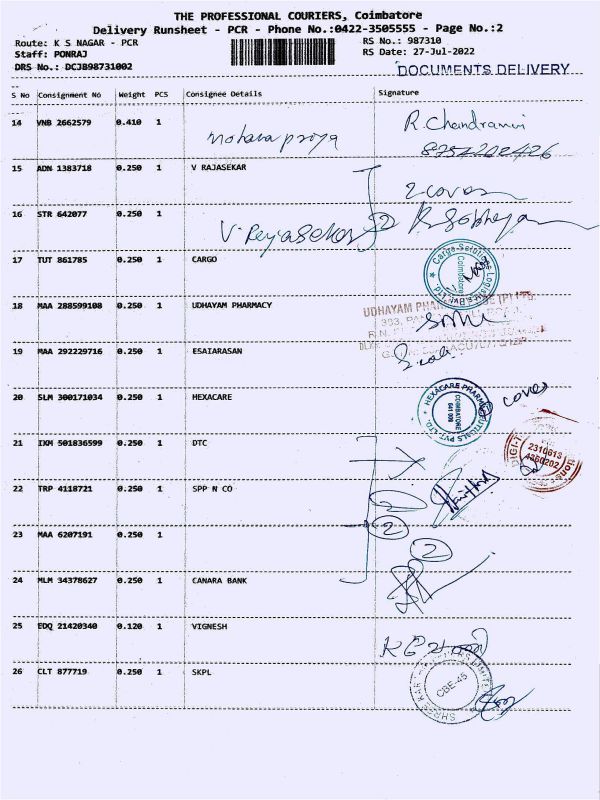 THE PROFESSIONAL COURIERS, Coimbatore
Delivery Runsheet - PCR - Phone No.:0422-3505555 - Page No.:2
Route: K S NAGAR - PCR
RS No.: 987310
Staff: PONRAJ
RS Date: 27-Jul-2022
DRS No.: DCJB98731002
DOCUMENTS DELIVERY
S No Consignment No Weight PCS Consignee Details Signature
14 VNB 2662579 0.410 1
Mohana priya
R. Chandramini
15 ADN 1383718 0.250 1 V RAJASEKAR
2 cover
16 STR 642077 0.250 1
V. Rejasekar 2
17 TUT 861785 0.250 1 CARGO
Coimbatore
18 MAA 288599108 0.250 1 UDHAYAM PHARMACY
UDHAYAM
19 MAA 292229716 0.250 1 ESAIARASAN
20 SLM 300171034 0.250 1 HEXACARE
HEXACARE PHARMACEUTICALS PVT LTD.
COIMBATORE
2 cover
21 IXM 501836599 0.250 1 DTC
2310613
4360202
22 TRP 4118721 0.250 1 SPP N CO
2
23 MAA 6207191 0.250 1
2
2
24 MLM 34378627 0.250 1 CANARA BANK
25 EDQ 21420340 0.120 1 VIGNESH
26 CLT 877719 0.250 1 SKPL
CBE-45